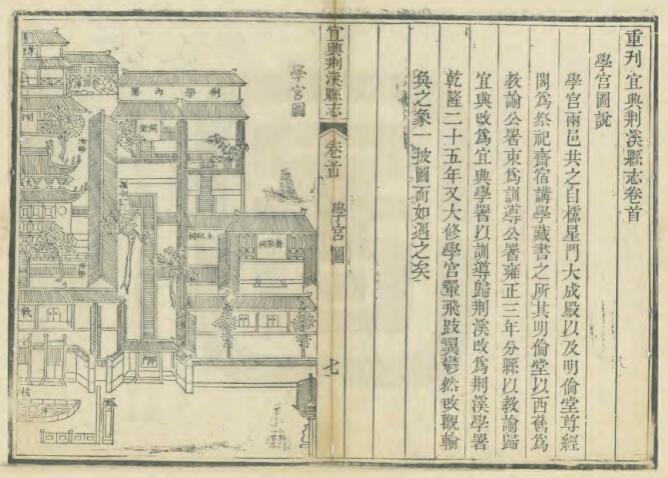 重刊宜興荆溪縣志卷首
學宮圖說
學宮兩邑共之自櫺星門大成殿以及明倫堂尊經
閣爲祭祀齋宿講學藏書之所其明倫堂以西舊爲
教諭公署東爲訓導公署雍正三年分縣以教諭歸
宜興改爲宜興學署以訓導歸荆溪改爲荆溪學署
乾隆二十五年又大修學宮翬飛跂翼鬱然改觀輪
奐之象一披圖而如遇之矣
宜興荆溪縣志
卷首
學宮圖
七
學宮圖
荆學內署
土地祠